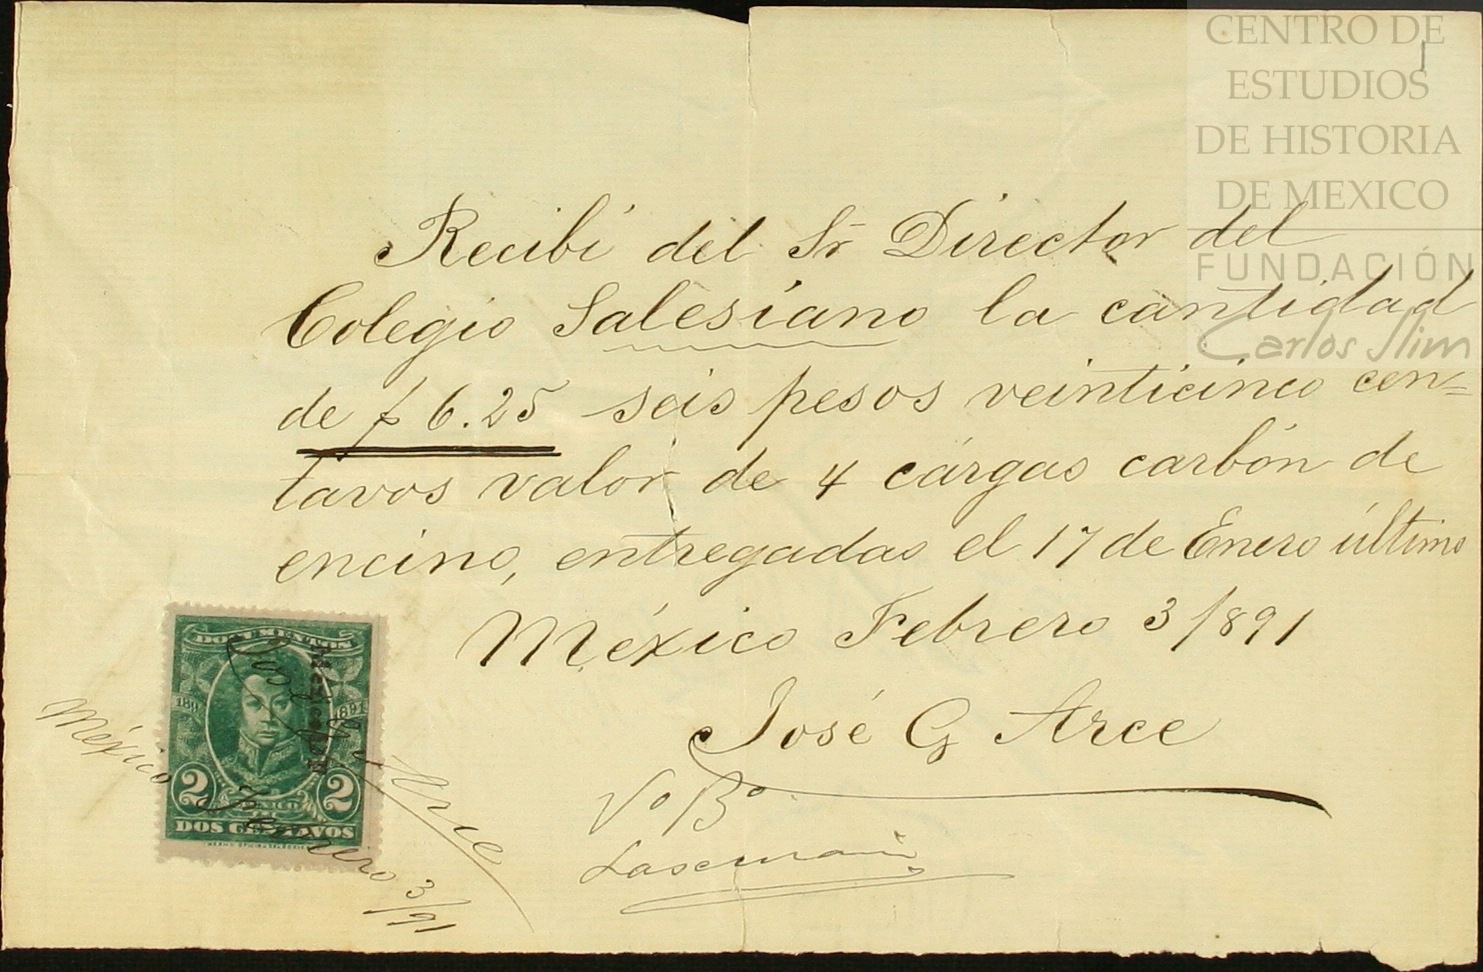 CENTRO DE
ESTUDIOS
DE HISTORIA
DE MEXICO
FUNDACIÓN
Carlos Slim
Recibí del Sr Director del
Colegio Salesiano la cantidad
de $ 6.25 seis pesos veinticinco cen=
tavos valor de 4 cárgas carbón de
encino, entregadas el 17 de Enero último
México Febrero 3/891
José G Arce
Vo Bo
DOCUMENTOS
1891
2 MEXICO 2
DOS CENTAVOS
México
José G Arce
Febrero 3/91